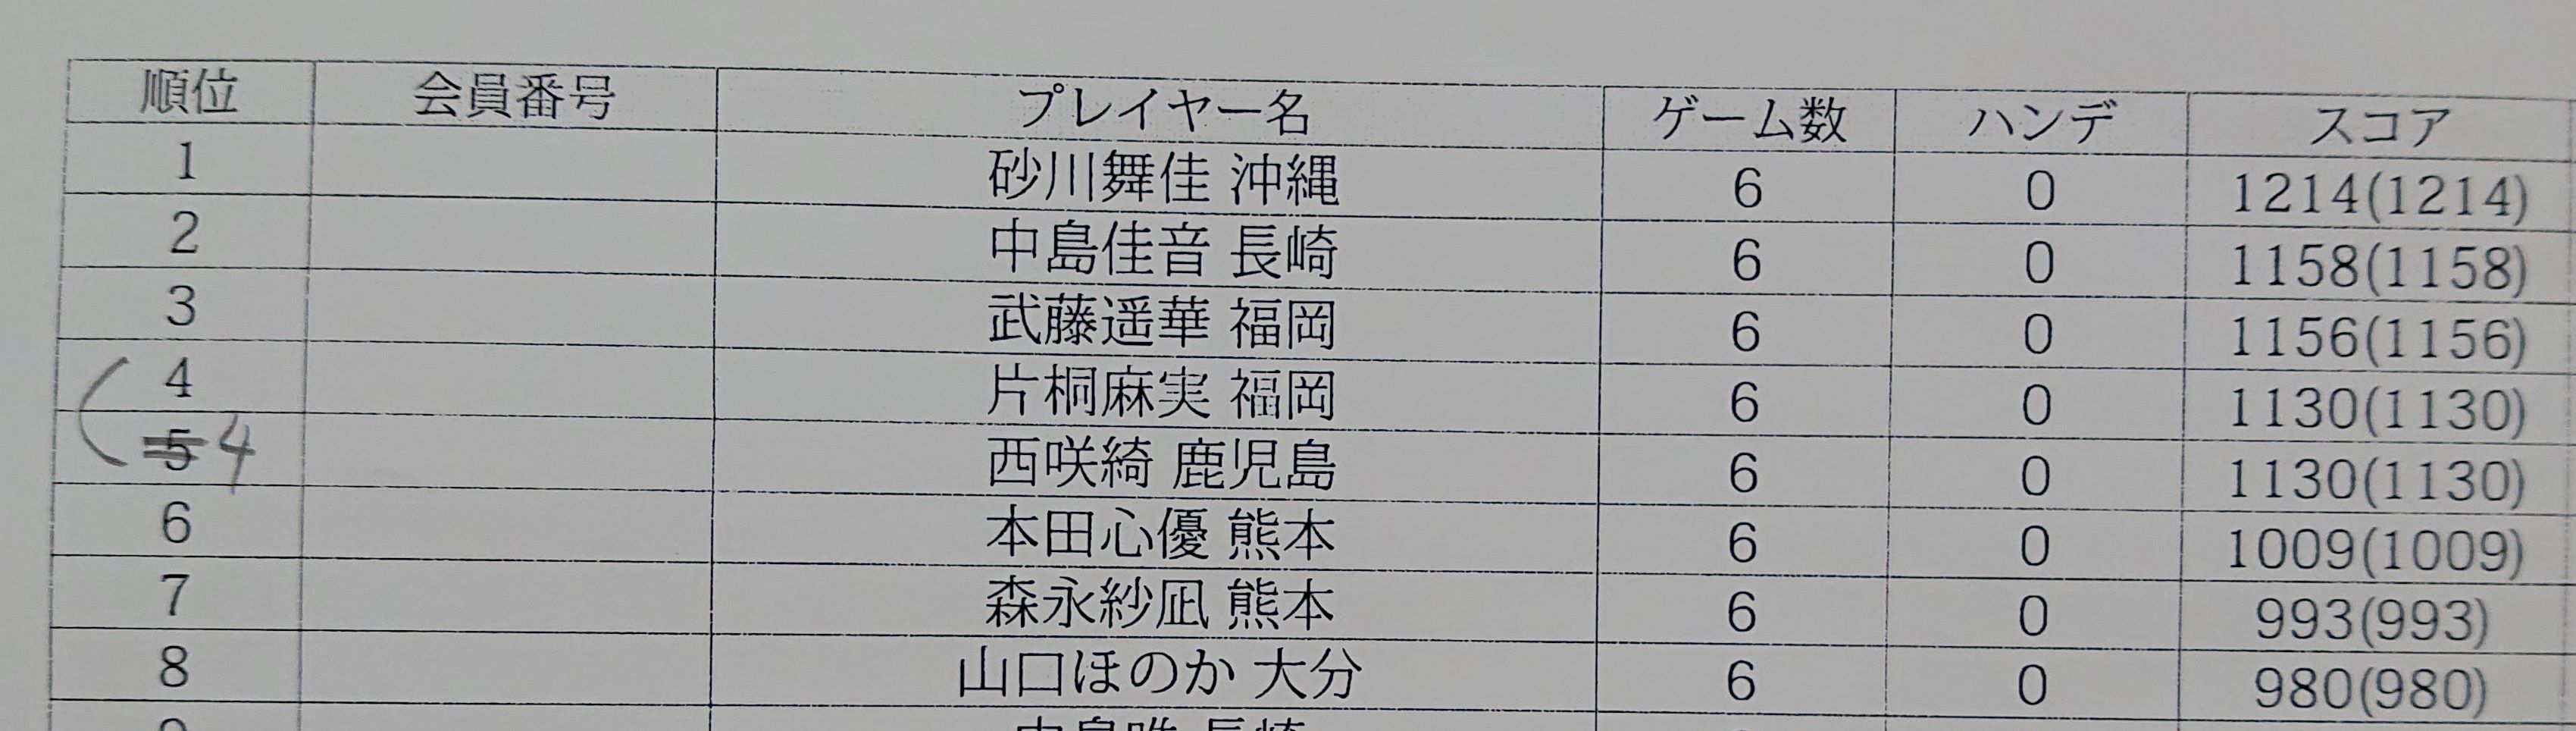 順位 会員番号 プレイヤー名 ゲーム数 ハンデ スコア
1 砂川舞佳 沖縄 6 0 1214(1214)
2 中島佳音 長崎 6 0 1158(1158)
3 武藤遥華 福岡 6 0 1156(1156)
4 片桐麻実 福岡 6 0 1130(1130)
5 4 西咲綺 鹿児島 6 0 1130(1130)
6 本田心優 熊本 6 0 1009(1009)
7 森永紗凪 熊本 6 0 993(993)
8 山口ほのか 大分 6 0 980(980)